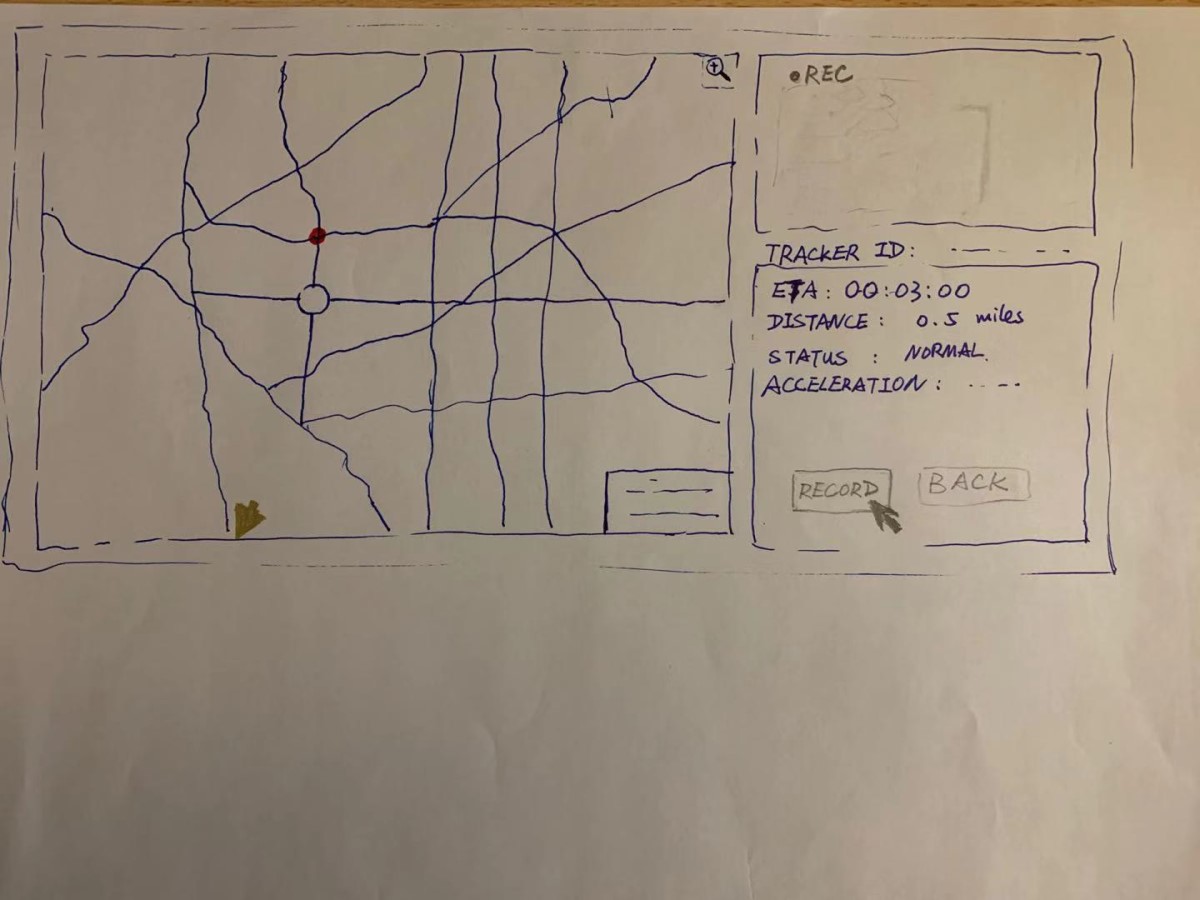 •REC
TRACKER ID: ---- - -
ETA: 00:03:00
DISTANCE: 0.5 miles
STATUS : NORMAL.
ACCELERATION: ----
RECORD
BACK